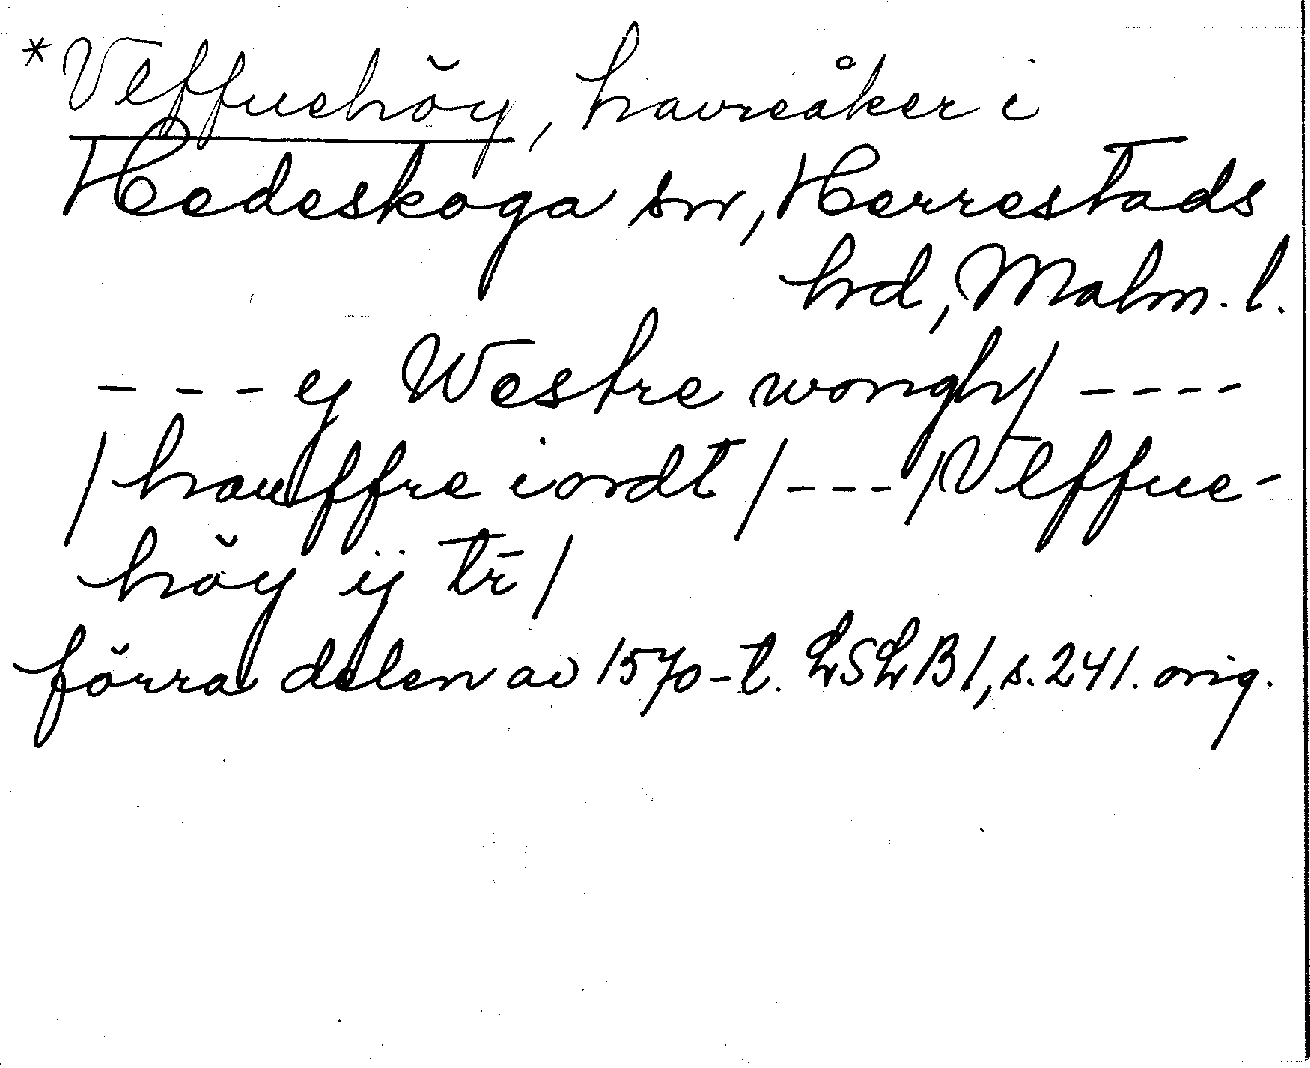 *Vlffuehöy, havreåker i
Hedeskoga sn, Herrestads
hrd, Malm. l.
- - - ej Westre wongh/ - - - -
/ hauffre iordt / - - - /Vlffue-
höy ij tr̄ /
förra delen av 1570-t. LSLB1, s. 241. orig.